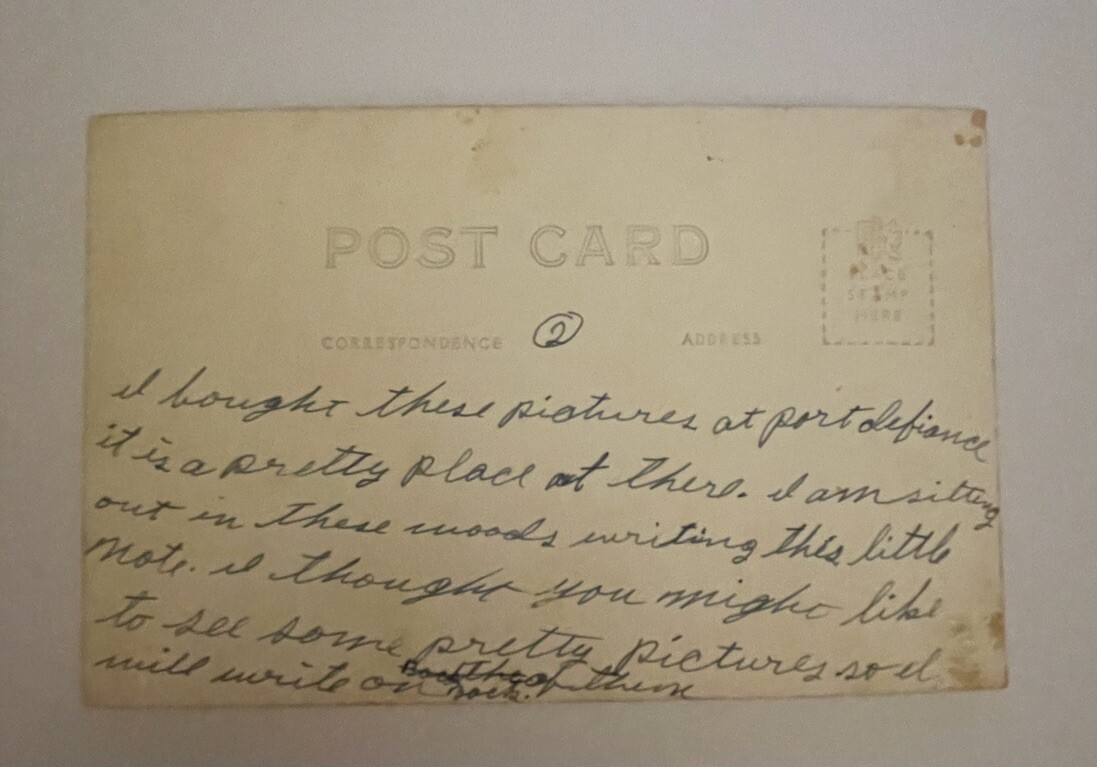 POST CARD
PLACE
STAMP
HERE
②
CORRESPONDENCE ADDRESS
I bought these pictures at port defiance
it is a pretty place at there. I am sitting
out in these woods writing this little
note. I thought you might like
to see some pretty pictures so I
will write on of them